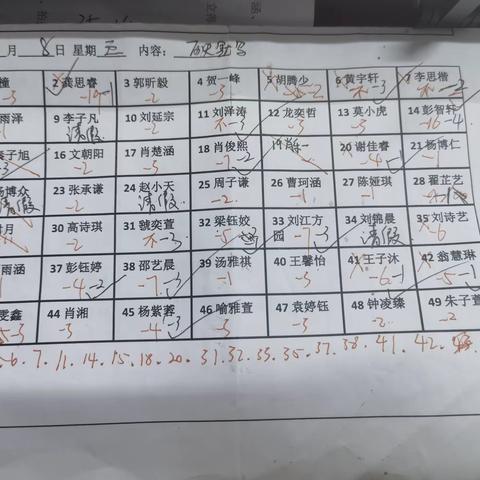 月 8 日 星期 三 内容: 历史默写
2 龚思睿 3 郭昕毅 4 贺一峰 5 胡腾少 6 黄宇轩 7 李思楷
-19 -2 -3 -2 不 -3 -2
雨泽 9 李子凡 10 刘延宗 11 刘泽涛 12 龙奕哲 13 莫小虎 14 彭智轩
请假 -2 不 -3 -3 -3 -16 -4
子旭 16 文朝阳 17 肖楚涵 18 肖俊熙 19 肖 20 谢佳睿 21 杨博仁
-3 -2 -3 -7 -2 -4 -1 -1
杨博众 23 张承谦 24 赵小天 25 周子谦 26 曹珂涵 27 陈娅琪 28 翟芷艺
请假 -2 请假 -2 -1 -1
月 30 高诗琪 31 虢奕萱 32 梁钰姣 33 刘江方园 34 刘锦晨 35 刘诗艺
-2 不 -3 -5 -7 -3 请假 -6
雨涵 37 彭钰婷 38 邵艺晨 39 汤雅祺 40 王馨怡 41 王子沐 42 翁慧琳
-4 -2 -7 -3 -1 -3 -6 -1 -5 -1
雯鑫 44 肖湘 45 杨紫蓉 46 喻雅萱 47 袁婷钰 48 钟凌臻 49 朱子萱
-5 -3 -3 -4 -3 -3 -3 -2 -2
6. 7. 11. 14. 15. 18. 20. 31. 32. 33. 35. 37. 38. 41. 42.